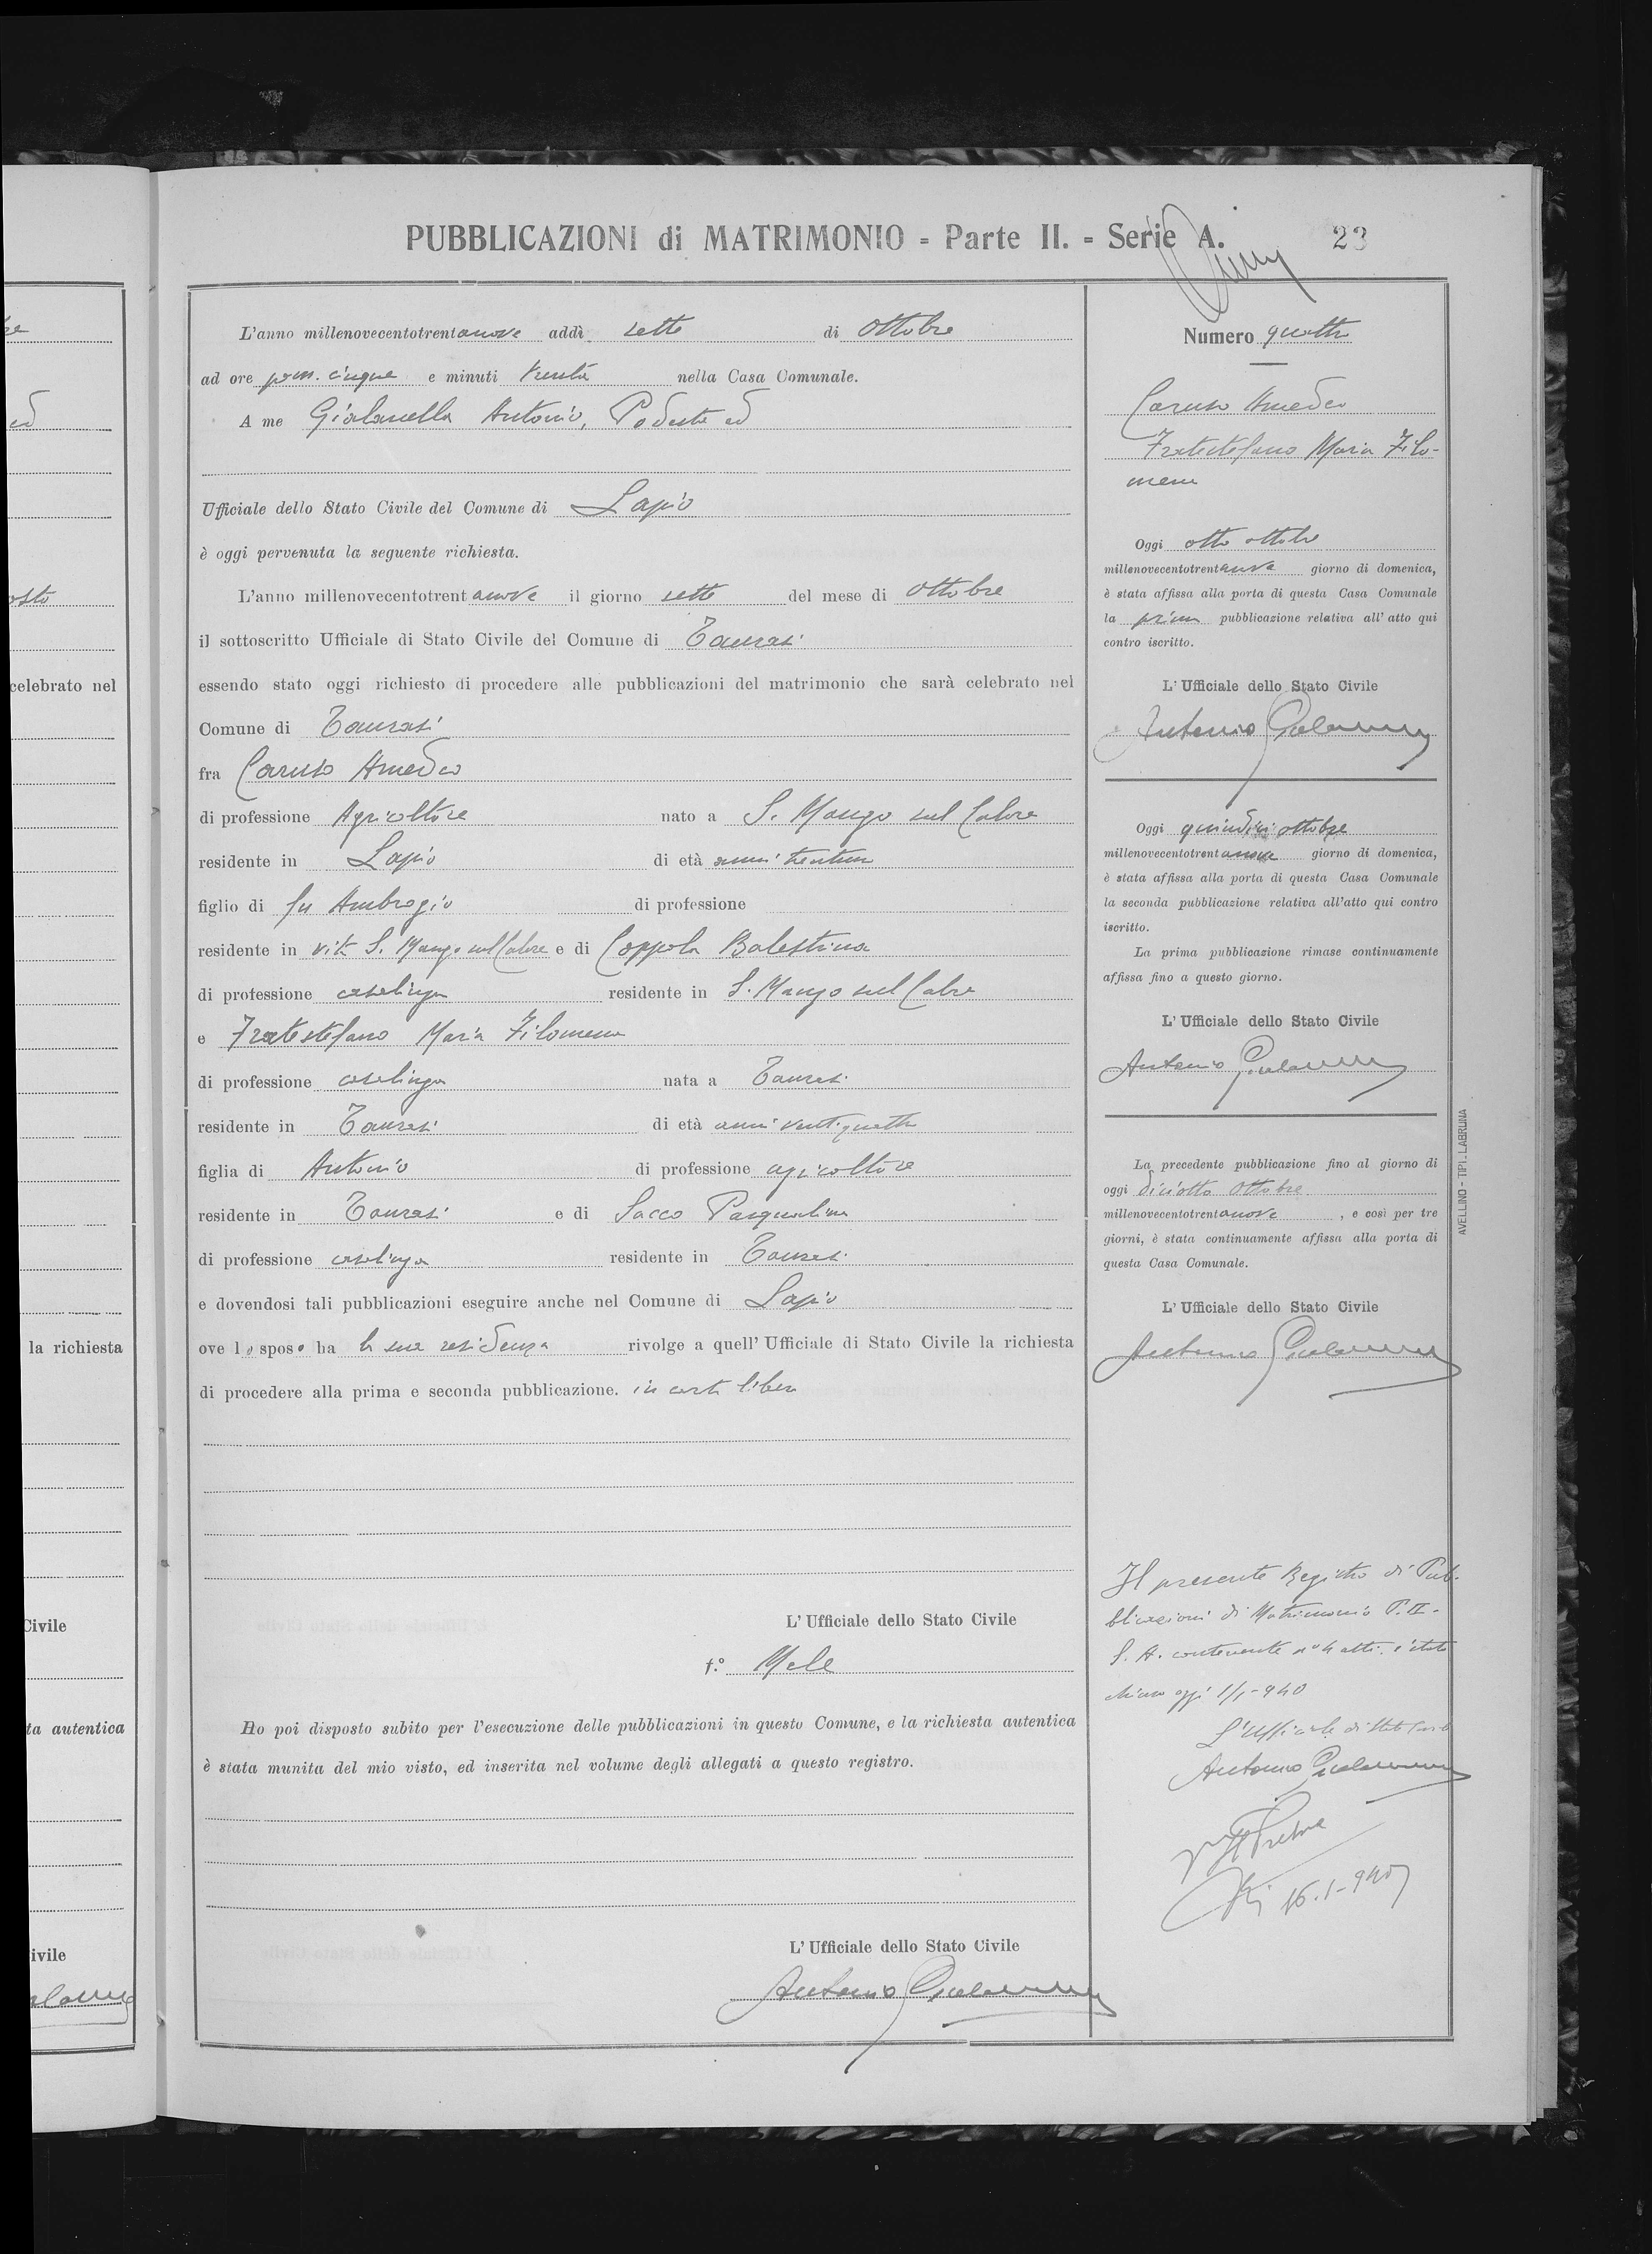 PUBBLICAZIONI di MATRIMONIO = Parte II. = Serie A.
23
L'anno millenovecentotrentanove addì sette di ottobre
ad ore pom. cinque e minuti trenta nella Casa Comunale.
A me Gialanella Antonio, Podestà ed
Ufficiale dello Stato Civile del Comune di Lapio
è oggi pervenuta la seguente richiesta.
L'anno millenovecentotrentanove il giorno sette del mese di ottobre
il sottoscritto Ufficiale di Stato Civile del Comune di Taurasi
essendo stato oggi richiesto di procedere alle pubblicazioni del matrimonio che sarà celebrato nel
Comune di Taurasi
fra Caruso Amedeo
di professione Agricoltore nato a S. Mango sul Calore
residente in Lapio di età anni trentun
figlio di fu Ambrogio di professione
residente in vita S. Mango sul Calore e di Coppola Balestrina
di professione casalinga residente in S. Mango sul Calore
e Fratestefano Maria Filomena
di professione casalinga nata a Taurasi
residente in Taurasi di età anni ventiquattro
figlia di Antonio di professione agricoltore
residente in Taurasi e di Sacco Pasqualina
di professione casalinga residente in Taurasi
e dovendosi tali pubblicazioni eseguire anche nel Comune di Lapio
ove lo sposo ha la sua residenza rivolge a quell' Ufficiale di Stato Civile la richiesta
di procedere alla prima e seconda pubblicazione. in carta libera
L' Ufficiale dello Stato Civile
f.° Mele
Ho poi disposto subito per l'esecuzione delle pubblicazioni in questo Comune, e la richiesta autentica
è stata munita del mio visto, ed inserita nel volume degli allegati a questo registro.
L' Ufficiale dello Stato Civile
Antonio Gialanella
Numero quattro
Caruso Amedeo
Fratestefano Maria Filo-
mena
Oggi otto ottobre
millenovecentotrentanove giorno di domenica,
è stata affissa alla porta di questa Casa Comunale
la prima pubblicazione relativa all' atto qui
contro iscritto.
L' Ufficiale dello Stato Civile
Antonio Gialanella
Oggi quindici ottobre
millenovecentotrentanove giorno di domenica,
è stata affissa alla porta di questa Casa Comunale
la seconda pubblicazione relativa all'atto qui contro
iscritto.
La prima pubblicazione rimase continuamente
affissa fino a questo giorno.
L' Ufficiale dello Stato Civile
Antonio Gialanella
La precedente pubblicazione fino al giorno di
oggi diciotto ottobre
millenovecentotrentanove , e così per tre
giorni, è stata continuamente affissa alla porta di
questa Casa Comunale.
L' Ufficiale dello Stato Civile
Antonio Gialanella
Il presente Registro di Pub-
blicazioni di Matrimonio P. II -
S. A. contenente n° 4 atti è stato
chiuso oggi 1/1-940
L'Ufficiale di Stato Civile
Antonio Gialanella
Il Pretore
16.1-940
AVELLINO - TIP. LABRUNA
celebrato nel
la richiesta
Civile
ta autentica
ivile